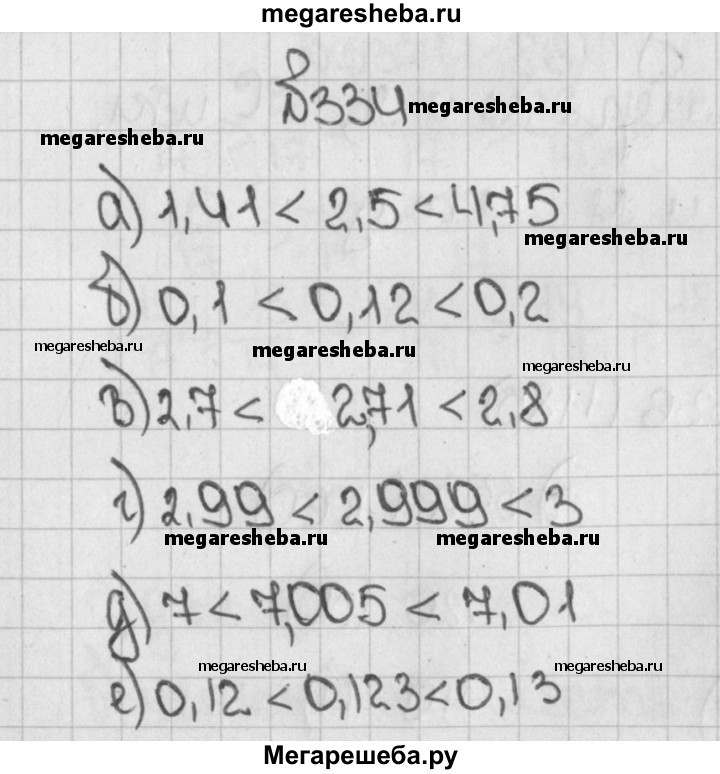 megaresheba.ru
№334 megaresheba.ru
megaresheba.ru
а) 1,41 < 2,5 < 4,75
megaresheba.ru
б) 0,1 < 0,12 < 0,2
megaresheba.ru
megaresheba.ru
megaresheba.ru
в) 2,7 < 2,71 < 2,8
г) 2,99 < 2,999 < 3
megaresheba.ru megaresheba.ru
д) 7 < 7,005 < 7,01
megaresheba.ru megaresheba.ru
е) 0,12 < 0,123 < 0,13
Мегарешеба.ру